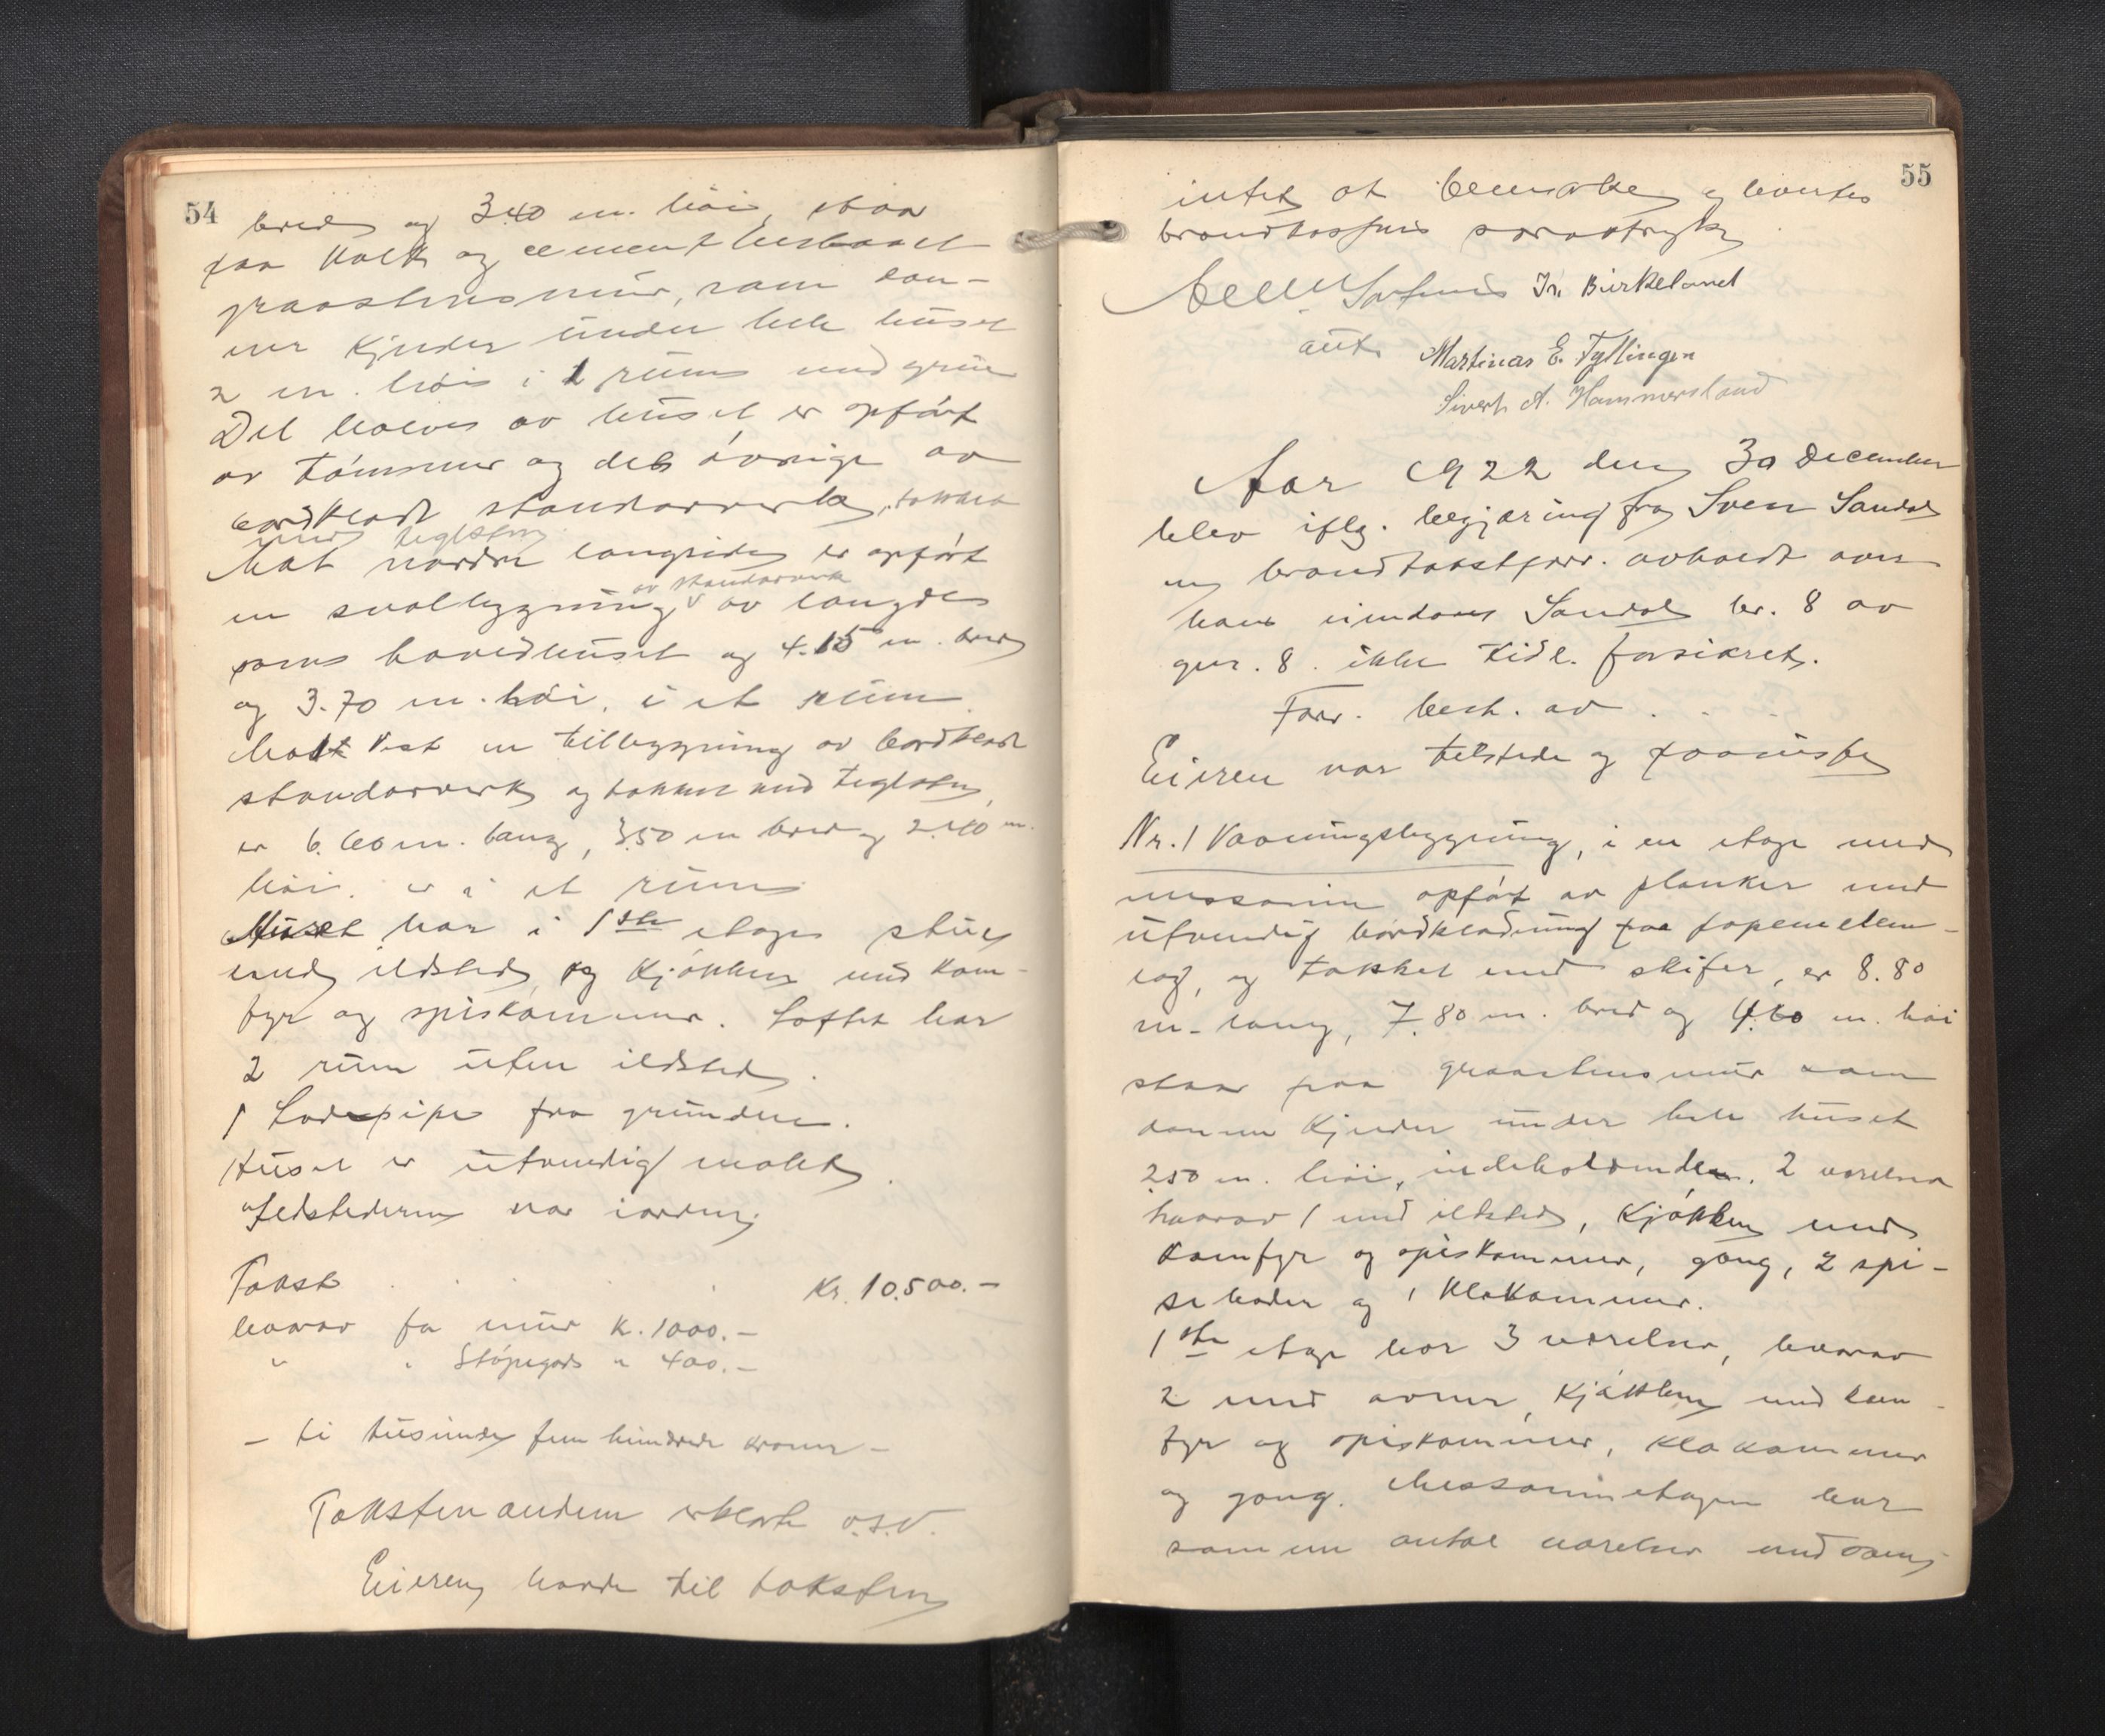 54
bred og 3.40 m. höi, staar
paa kalk og cementhusbaaret
graastensmur, som dan-
ner kjelder under hele huset
2 m. höi i 1 rum med grue
Det halve av huset er opfört
av tömmer og det övrige av
bordklædt standarverk, tækket
med teglsten
Mot nordre langside er opfört
en svalbygning av standarverk av længde
som hovedhuset og 4.15 m. bred
og 3.70 m. höi, i et rum.
Mot Vest en tilbygning av bordklædt
standarverk og tækket med teglsten,
er 6.60 m. lang, 3.50 m bred og 2.40 m.
höi. er i et rum
Huset har i 1ste etage stue
med ildsted, og kjökken med kom-
fyr og spiskammer. Loftet har
2 rum uten ildsted.
1 Lodepipe fra grunden.
Huset er utvendig malet.
Ildstederne var iorden.
Takst . . . . Kr. 10.500.-
hvorav for mur K. 1000.-
" " Stöpegods " 400.-
- ti tusinde fem hundrede kroner -
Takstmændene erklærte o.s.v.
Eieren havde til taksten
55
intet at bemerke og hertes
brandkassens særavtryk
Jn. Birkeland
aut.
Martinas E. Tyllingen
Sivert A. Hammersland
Aar 1922 den 30 December
blev iflg. begjæring fra Sven Sandal
en brandtakstforr. avholdt over
hans eiendom Sandal br. 8 av
gnr. 8. ikke tidl. forsikret.
Forr. best. av . . .
Eieren var tilstede og paaviste
Nr. 1 Vaaningsbygning, i en etage med
messanin opfört av planker med
utvendig bordklædning paa papemellem-
lag, og tækket med skifer, er 8.80
m. lang, 7.80 m. bred og 4.60 m. höi
staar paa graastensmur som
danner kjelder under hele huset
2.50 m. höi, indeholdende 2 værelser
hvorav 1 med ildsted, kjökken med
komfyr og spiskammer, gang, 2 spi-
seboder og 1 klækammer.
1ste etage har 3 værelser, hvorav
2 med ovner, kjökken med kom-
fyr og spiskammer, klækammer
og gang. Messaninetagen har
samme antal værelser med ovns